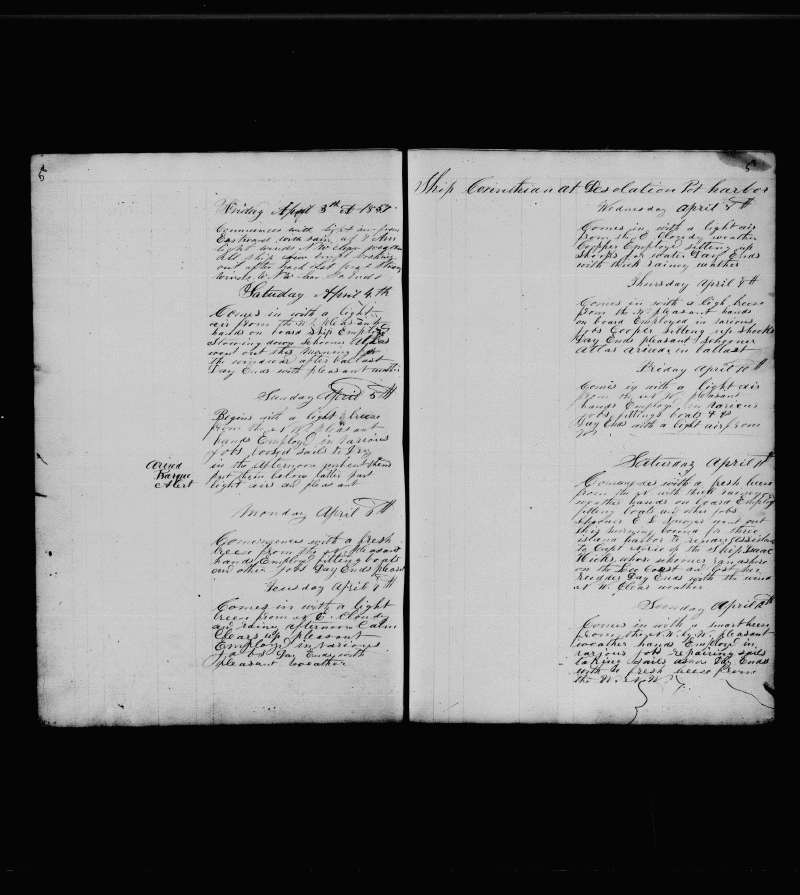 5
Friday April 3th 1857
Commences with light from
Eastward with rain
light winds N W clear
All ship
out after
Saturday April 4th
Comes in with a light
air from the N W pleasant
hands on board ship Employed
Stowing down schooner Atlas
went out this morning for
the windward after ballast
Day Ends with pleasant weather
Sunday April 5th
Begins with a light breeze
from the N W pleasant
hands Employd in various
jobs loosed sails to Dry
in the afternoon
put them below latter part
light airs and pleasant
Arived
Barque
Alert
Monday April 6th
Commences with a fresh
breeze from the pleasant
hands Employd fitting boats
and other jobs Day Ends pleasant
Tuesday April 7th
Comes in with a light
breeze from N E. Cloudy
and rainy afternoon Calm
Clears up pleasant
Employd in various
jobs Day Ends with
pleasant weather
5
Ship Corinthian at Desolation Pt harbor
Wednesday April 8th
Comes in with a light air
from the E Cloudy weather
Cooper Employd sitting up
shooks for water Day Ends
with thick rainy weather
Thursday April 9th
Comes in with a ligh breeze
from the N pleasant hands
on board Employed in various
jobs Cooper sitting up shooks
Day Ends pleasant schooner
Atlas arived in ballast
Friday April 10th
Comes in with a light air
from the N W pleasant
hands Employd in various
jobs fitting boats & &
Day Ends with a light air from
Saturday April 11th
Commences with a fresh breeze
from the N with thick rainy
weather hands on board Employd
fitting boats and other jobs
schooner E L went out
this morning bound for three
island harbor to render assistance
to Capt of the Ship Isaac
Hicks whose schooner ran ashore
on the Lee Coast and lost her
rudder Day Ends with the wind
at W. Clear weather
Sunday April 12th
Comes in with a smart breeze
from the N. W. by W. pleasant
weather hands Employd in
various jobs repairing sails
taking sails ashore Day Ends
with a fresh breeze from
the W. N. W.